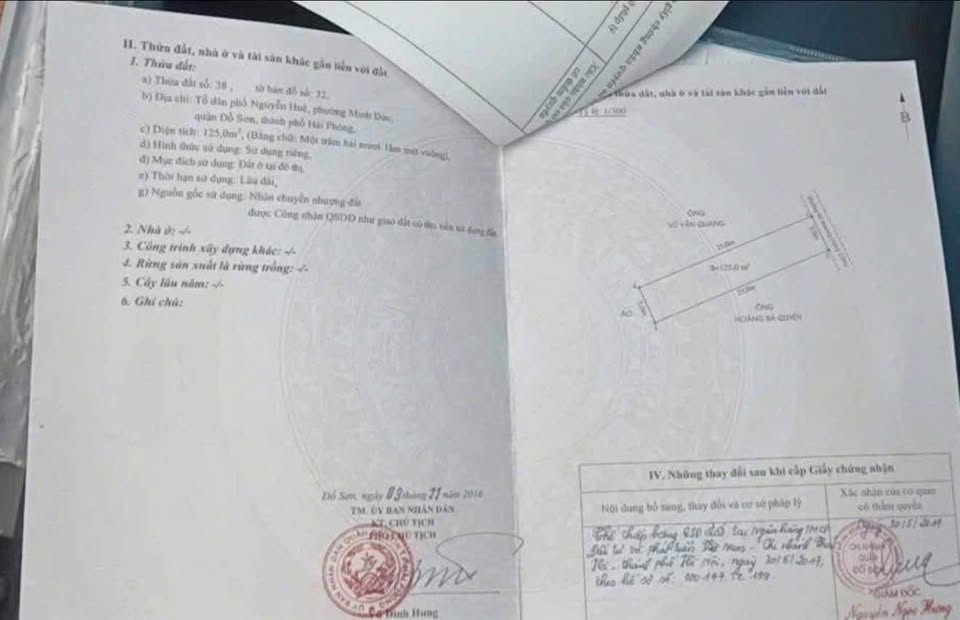 II. Thửa đất, nhà ở và tài sản khác gắn liền với đất
1. Thửa đất:
a) Thửa đất số: 38 , tờ bản đồ số: 32,
b) Địa chỉ: Tổ dân phố Nguyễn Huệ, phường Minh Đức,
quận Đồ Sơn, thành phố Hải Phòng,
c) Diện tích: 125,0m², (Bằng chữ: Một trăm hai mươi lăm mét vuông),
d) Hình thức sử dụng: Sử dụng riêng,
đ) Mục đích sử dụng: Đất ở tại đô thị,
e) Thời hạn sử dụng: Lâu dài,
g) Nguồn gốc sử dụng: Nhận chuyển nhượng đất
được Công nhận QSDĐ như giao đất có thu tiền sử dụng đất
2. Nhà ở: -/-
3. Công trình xây dựng khác: -/-
4. Rừng sản xuất là rừng trồng: -/-
5. Cây lâu năm: -/-
6. Ghi chú:
Đồ Sơn, ngày 03 tháng 11 năm 2016
TM. ỦY BAN NHÂN DÂN
KT. CHỦ TỊCH
PHÓ CHỦ TỊCH
Đình Hưng
Xác nhận của cơ quan
có thẩm quyền
thửa đất, nhà ở và tài sản khác gắn liền với đất
1/300
B
ÔNG
VŨ VĂN QUANG
25,0m
S=125,0 m²
25,0m
AO
5,0m
ÔNG
HOÀNG BÁ QUYỀN
IV. Những thay đổi sau khi cấp Giấy chứng nhận
Nội dung bổ sung, thay đổi và cơ sở pháp lý
Xác nhận của cơ quan
có thẩm quyền
Thế chấp bằng QSD đất tại ngân hàng TMCP
Đầu tư và phát triển Việt Nam - Chi nhánh
thành phố Hà Nội, ngày 30/5/2017,
theo hồ sơ số: 000147
Ngày 30/5/2017
CHI NHÁNH
QUẬN
ĐỒ SƠN
GIÁM ĐỐC
Nguyễn Ngọc Hưng